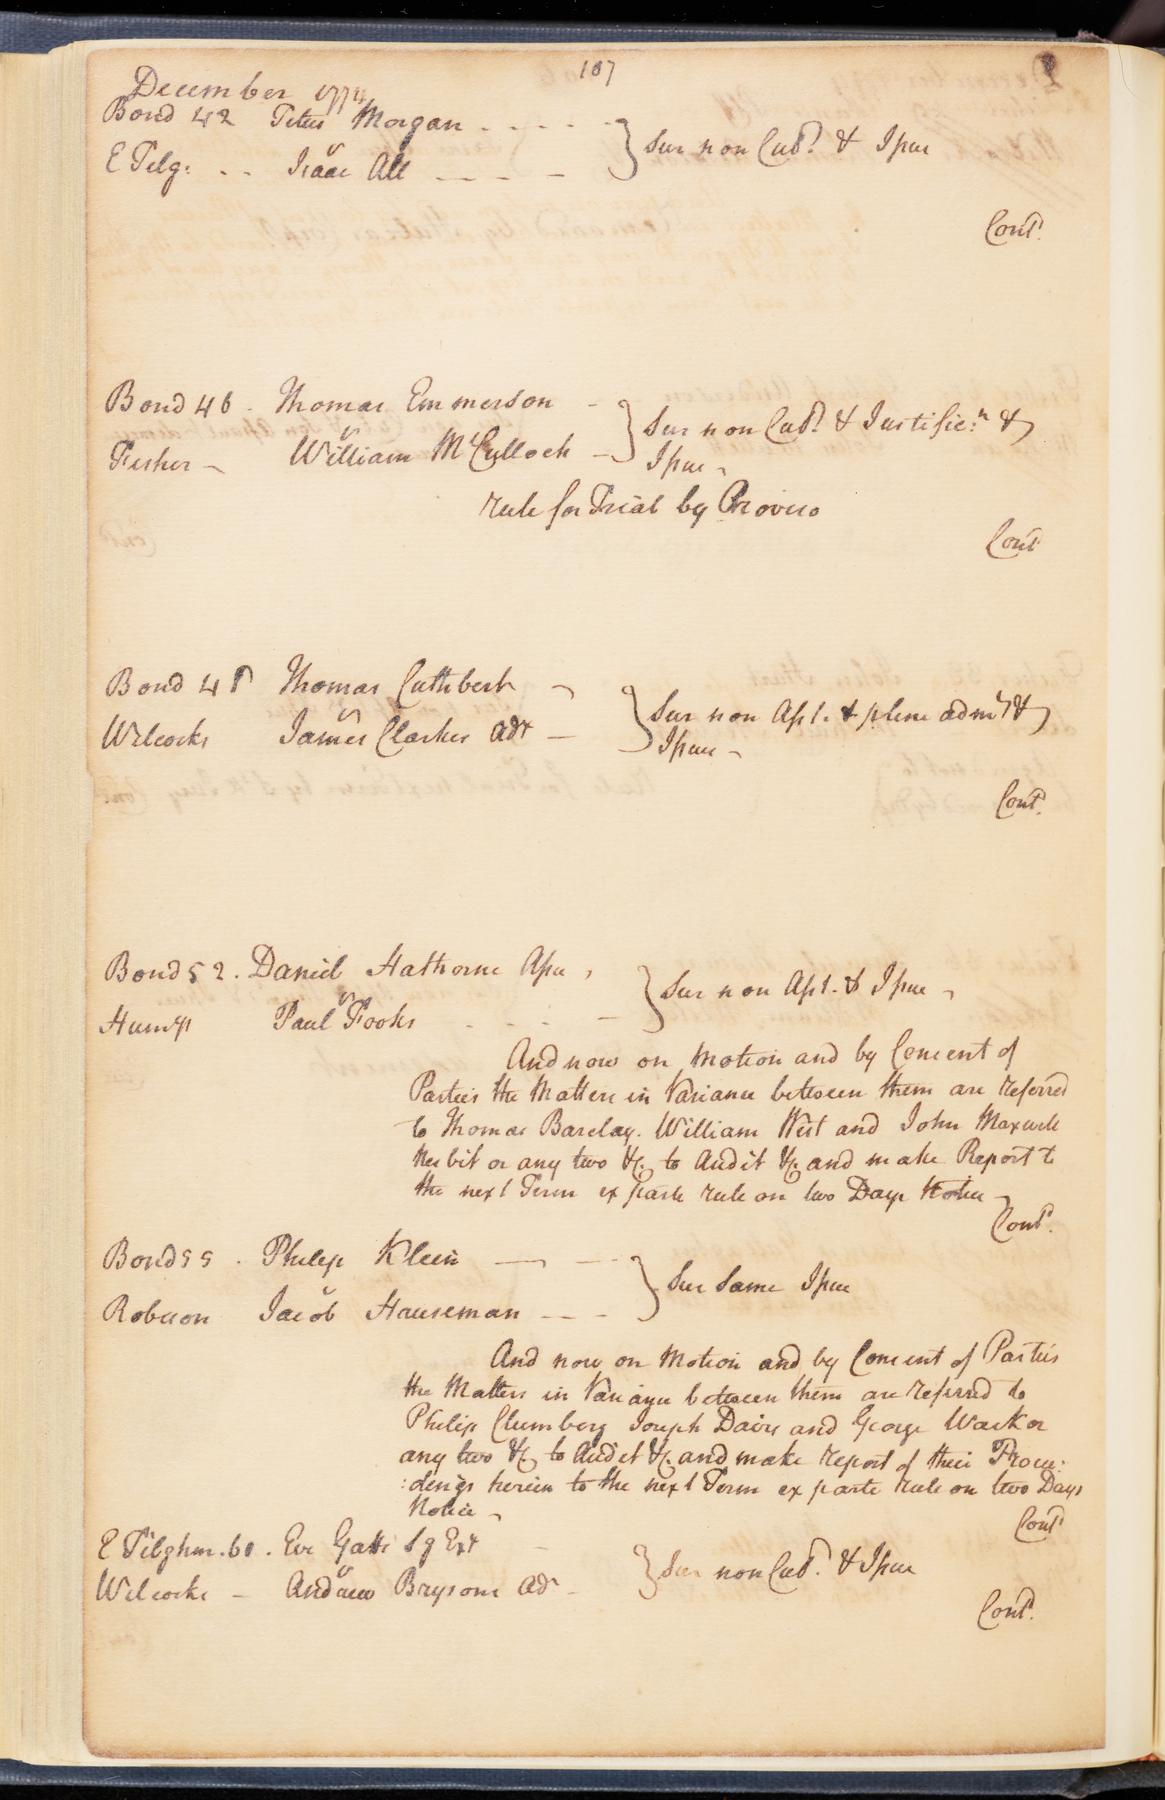 107
December 1774
Bond 42 Peter Morgan - - - - -
v
E Tilg: - - Isaac All - - - -
} Sur non Cul? & Issue
Cont?
Bond 46 - Thomas Emmerson -
v
Fisher ~ William McCulloch -
} Sur non Cul? & Justific:n &
Issue ~
rule for Trial by Proviso
Cont
Bond 48 Thomas Cuthbert ~
v
Wilcocks James Clarkes Adr -
} Sur non Ass t. & plene admt &
Issue ~
Cont?
Bond 52. Daniel Hathorne Assee,
vs
Humps Paul Fooks - - - -
} Sur non Asst. & Issue ~
And now on Motion and by Consent of
Parties the Matters in Variance between them are referred
to Thomas Barclay. William West and John Maxwell
Nesbit or any two &c. to Audit &c. and make Report to
the next Term ex parte rule on two Days Notice ~
Cont?
Bond 55 . Philip Klein - - -
v
Robeson Jacob Hauseman - - -
} Sur same Issue
And now on Motion and by Consent of Parties
the Matters in Variance between them are referred to
Philip Clumberg Joseph Davis and George Wack or
any two &c to Audit &c. and make report of their Procee:
:dings herein to the next Term ex parte rule on two Days
Notice ~
Cont?
E Tilghm. 60 . Eve Gatts Ext -
v
Wilcocks - Andrew Brysons Adr -
} Sur non Cul?. & Issue
Cont?